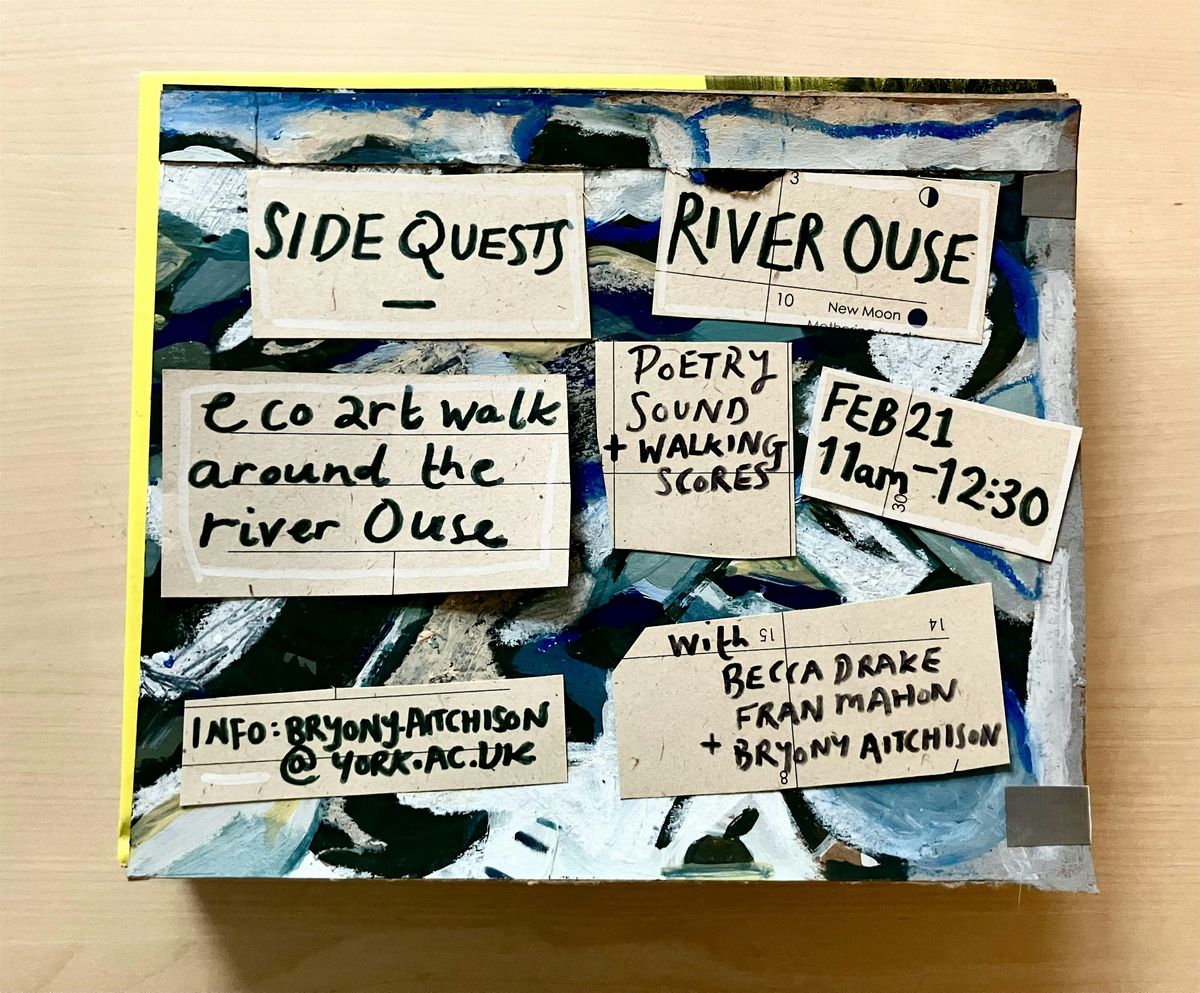 SIDE QUESTS
—
RIVER OUSE
3
10
New Moon
eco art walk
around the
river Ouse
POETRY
SOUND
+ WALKING
SCORES
FEB 21
11am-12:30
30
INFO: BRYONY.AITCHISON
@ YORK.AC.UK
with
15
14
BECCA DRAKE
FRAN MAHON
+ BRYONY AITCHISON
8